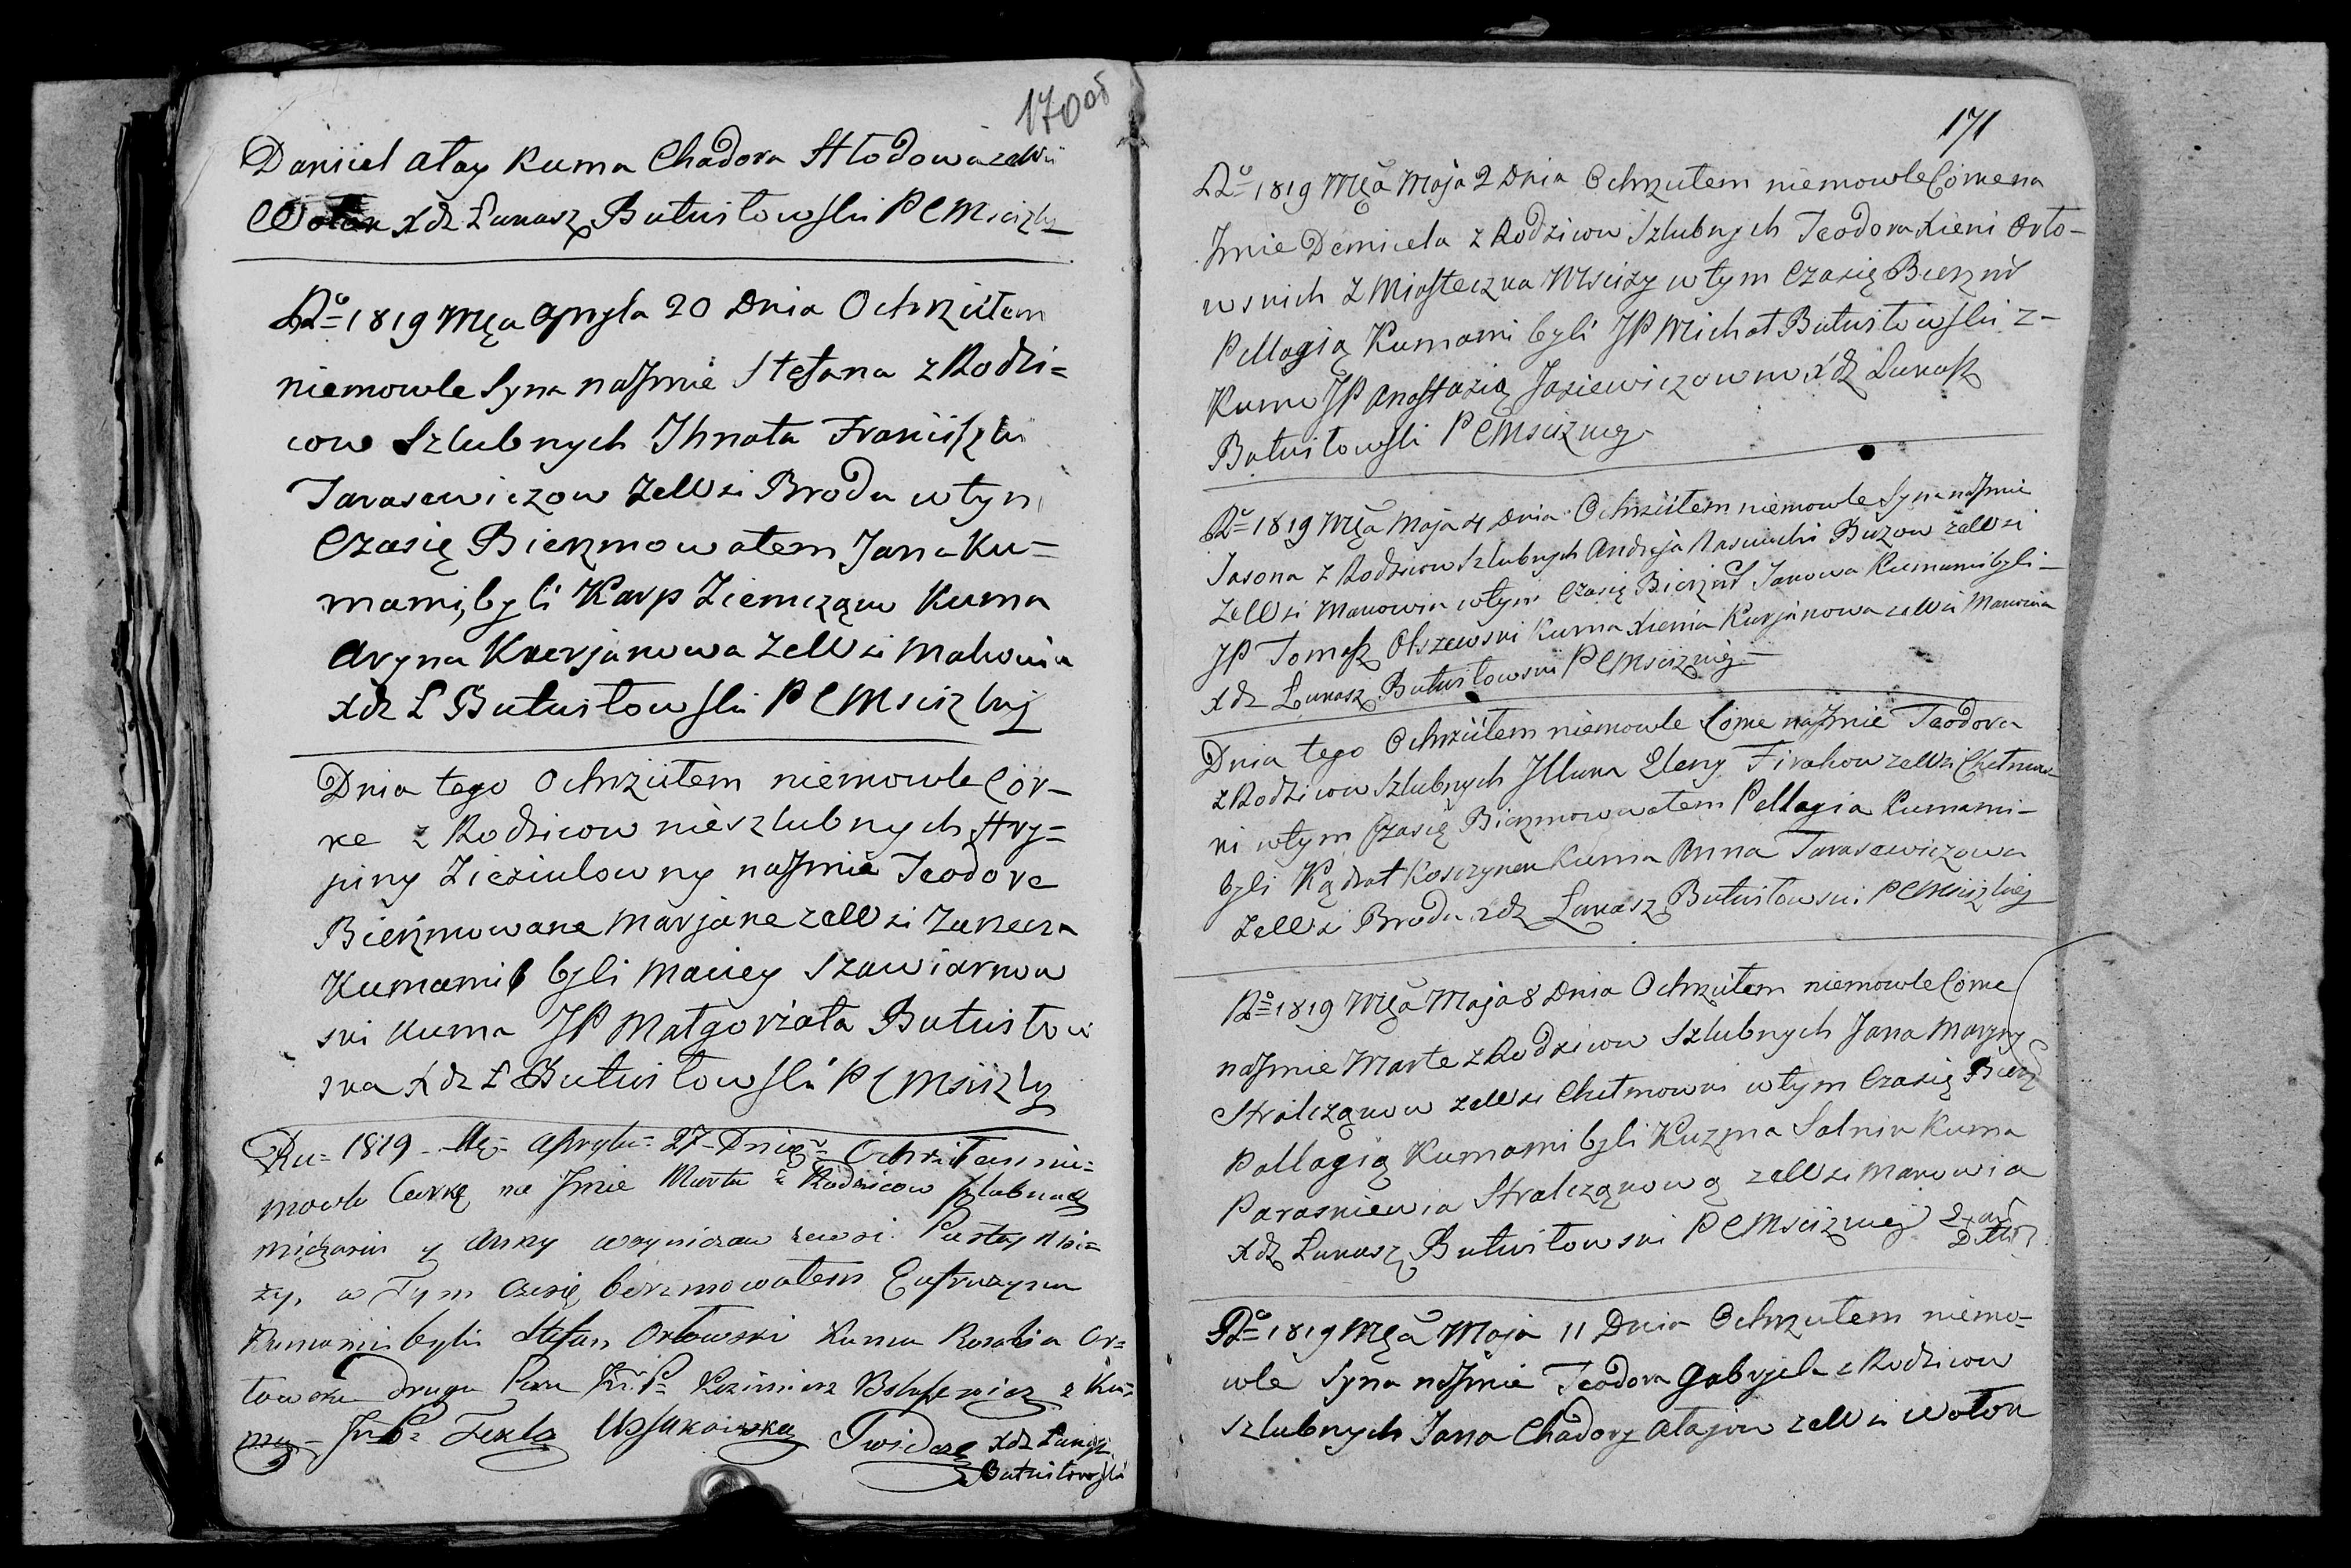 170 об
Daniiel ałay Kuma Chadora Hłodowa zeWsi
Wołok Xdz Łukasz Butwiłowski P C Mscizky
R°=1819 Męa Apryla 20 Dnia Ochrziłem
niemowle Syna naJmie Stefana z Rodzi=
cow Szlubnych Ihnata Franciszki
Tarasewiczow ZeWsi Brodu wtym
Czasię Bierzmowałem Jana Ku=
mami, byli Karp Ziemcząn Kuma
Aryna Kurjanowa ZeWsi Makowia
Xdz Ł Butwiłowski P C Msciz kiej
Dnia tego Ochrziłem niemowle Cór-
ke z Rodzicow nieszlubnych Hry=
piny Zieziulowny naJmie Teodore
Bierzmowane Marjane zeWsi
Kumami byli Maciey Szawiarnow
ski Kuma JP Małgorżata Butwiłow
ska Xdz Ł Butwiłowski P C Msciz ky
Ru= 1819 - Mę= Aprylu= 27- Dnia= Ochrziłem nie=
mowle Curkę na Jmie Marta z Rodzicow szlubnych
y Anny zewsi Pustey Msi=
ży, w Tym Czesię berzmowałem Eufruzyna
Kumami byli Stefan Orłowski Kuma Rozalia Or=
łowska druga Para Jm P= Kazimierz z Ku=
mą= Jm P= Tekla Xdz Łukasz
Butwiłowski
171
R°=1819 Męa Maja 2 Dnia Ochrzułem niemowle Corke na
Jmie Domicela z Rodzicow Szlubnych Teodora Xieni Orło-
wskich z Miasteczka Mscizy wtym Czasię Bierzm
Pellagią Kumami byli JP Michał Butwiłowski z-
Kumo JP Anastazią Jasiewiczowno Xdz Łukasz
Butwiłowski P C Mscizkiey
R°=1819 Męa Maja 4 Dnia Ochrziiłem niemowle Syna naJmie
Jasona z Rodzicow Szlubnych Andreja Buzow zeWsi
ZeWsi Makowia wtym Czasię Bierzm Janowa Kumami byli-
JP Tomasz Olszewski Kuma Xienia Kurjanowa zeWsi Makowia
Xdz Łukasz Butwiłowski P C Mscizkiej
Dnia tego Ochrziiłem niemowle Corke naJmie Teodora
z Rodzicow Szlubnych Illuka Uleny Firahow zeWsi Chełmow
ki wtym Czasię Bierzmowowałem Pellagia Kumami-
byli Kądrat Koszynen Kuma Anna Tarasewiczowa
ZeWsi Brodu xdz Łukasz Butwiłowski P C Mscizkiej
R°=1819 Męa Maja 8 Dnia Ochrzułem niemowle Corke
naJmie Marte z Rodzicow Szlubnych Jana Maryny
Stralcząnow zeWsi Chełmowki wtym Czasię Bierz
Pallagią Kumami byli Kuzma Salnik Kuma
Paraskiewia Stralcząnową zeWsi Makowia
Xdz Łukasz Butwiłowski P C Mscizkiej
R°=1819 Męa Maja 11 Dnia Ochrzułem niemo=
wle Syna naJmie Teodora Gabryela z Rodzicow
Szlubnych Jana Chadory Ałajow zeWsi Wołok